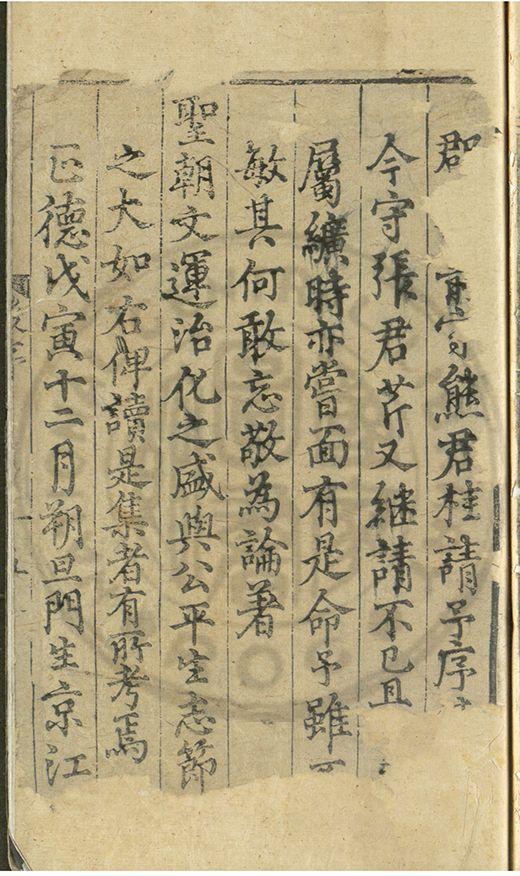 郡 熊君桂請予序
今守張君芹又継請不已且
屬纊時亦嘗面有是命予雖
敏其何敢忘敬為論著
聖朝文運治化之盛與公平生志節
之大如右俾讀是集者有所考焉
正德戊寅十二月朔旦門生京江